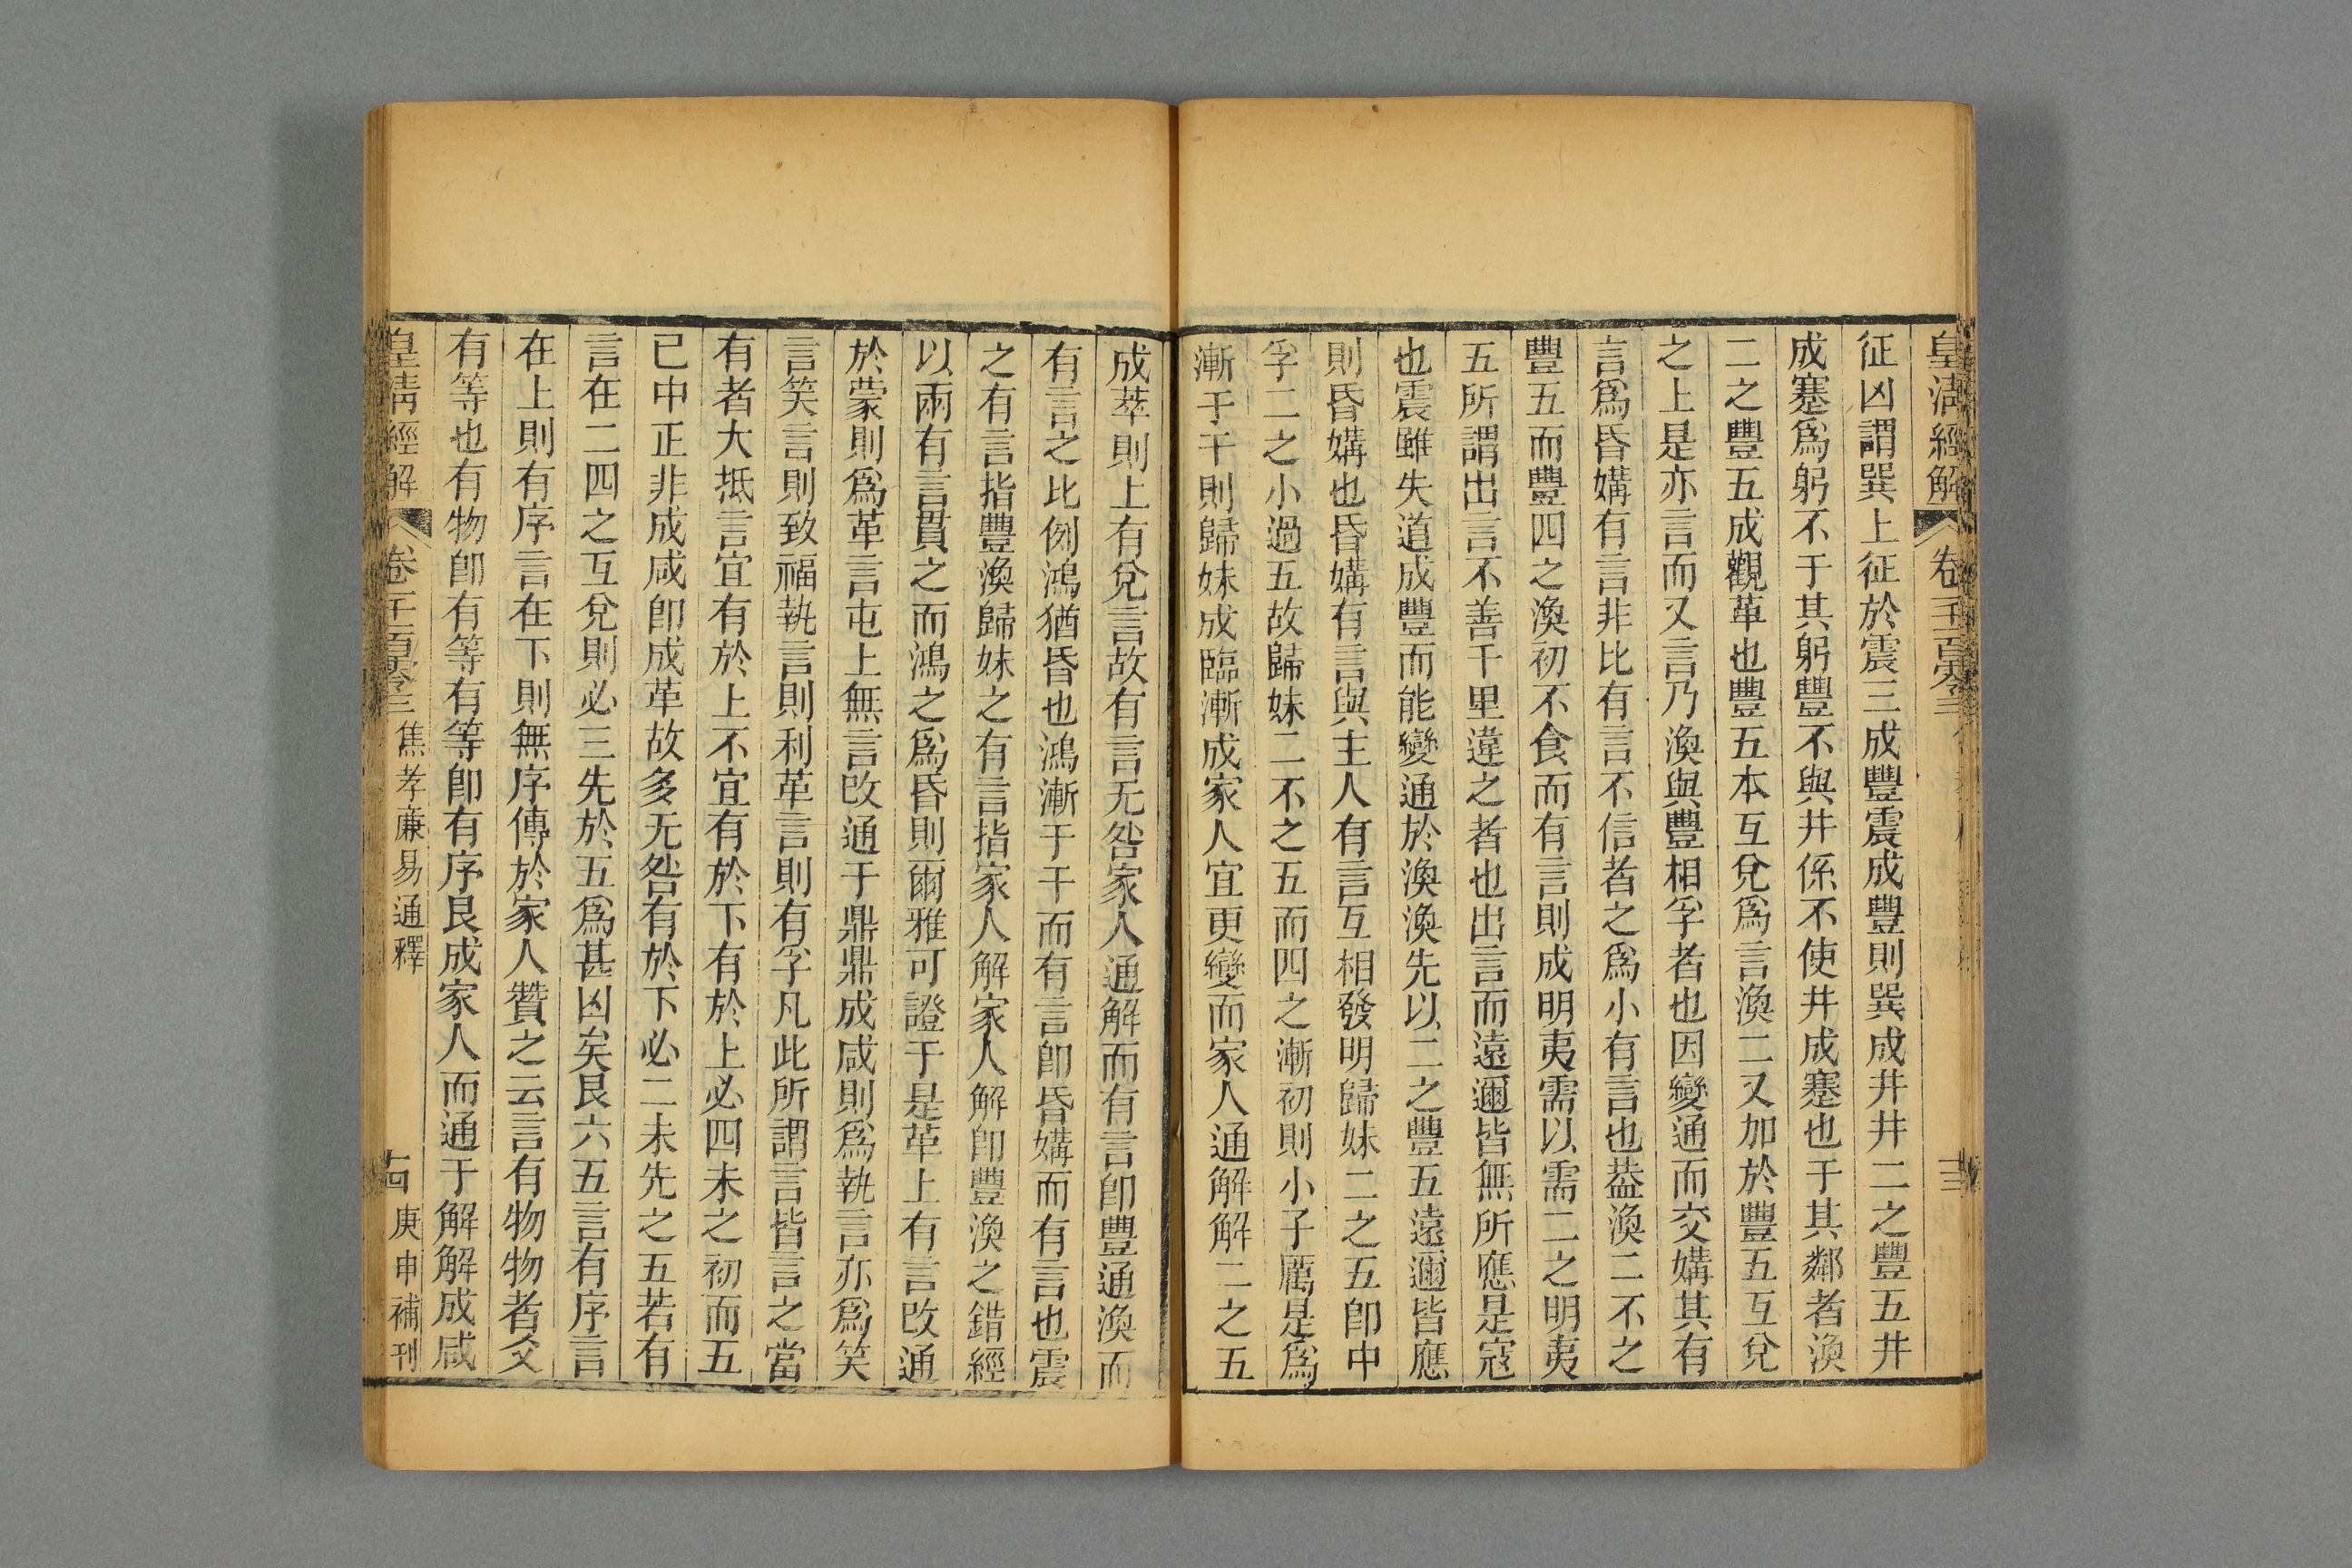 皇清經解
卷一千一百零三
征凶謂巽上征於震三成豐震成豐則巽成井井二之豐五井
成蹇爲躬不于其躬豐不與井係不使井成蹇也于其鄰者渙
二之豐五成觀革也豐五本互兌爲言渙二又加於豐五互兌
之上是亦言而又言乃渙與豐相孚者也因變通而交媾其有
言爲昏媾有言非比有言不信者之爲小有言也葢渙二不之
豐五而豐四之渙初不食而有言則成明夷需以需二之明夷
五所謂出言不善千里違之者也出言而遠邇皆無所應是寇
也震雖失道成豐而能變通於渙渙先以二之豐五遠邇皆應
則昏媾也昏媾有言與主人有言互相發明歸妹二之五卽中
孚二之小過五故歸妹二不之五而四之漸初則小子厲是爲
漸于干則歸妹成臨漸成家人宜更變而家人通解解二之五
成萃則上有兌言故有言无咎家人通解而有言卽豐通渙而
有言之比例鴻猶昏也鴻漸于干而有言卽昏媾而有言也震
之有言指豐渙歸妹之有言指家人解家人解卽豐渙之錯經
以兩有言貫之而鴻之爲昏則爾雅可證于是革上有言改通
於蒙則爲革言屯上無言改通于鼎鼎成咸則爲執言亦爲笑
言笑言則致福執言則利革言則有孚凡此所謂言皆言之當
有者大抵言宜有於上不宜有於下有於上必四未之初而五
已中正非成咸卽成革故多无咎有於下必二未先之五若有
言在二四之互兌則必三先於五爲甚凶矣艮六五言有序言
在上則有序言在下則無序傳於家人贊之云言有物物者爻
有等也有物卽有等有等卽有序艮成家人而通于解解成咸
皇清經解
卷一千一百零三
焦孝廉易通釋
庚申補刊